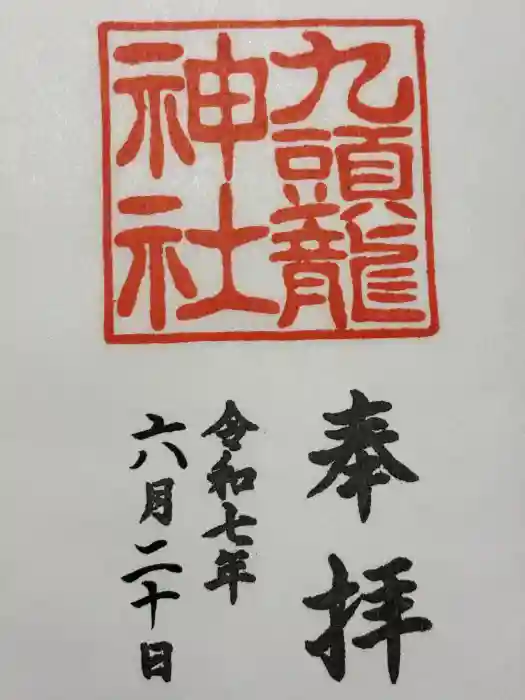 九頭龍
神社
奉拝
令和七年
六八月二十日